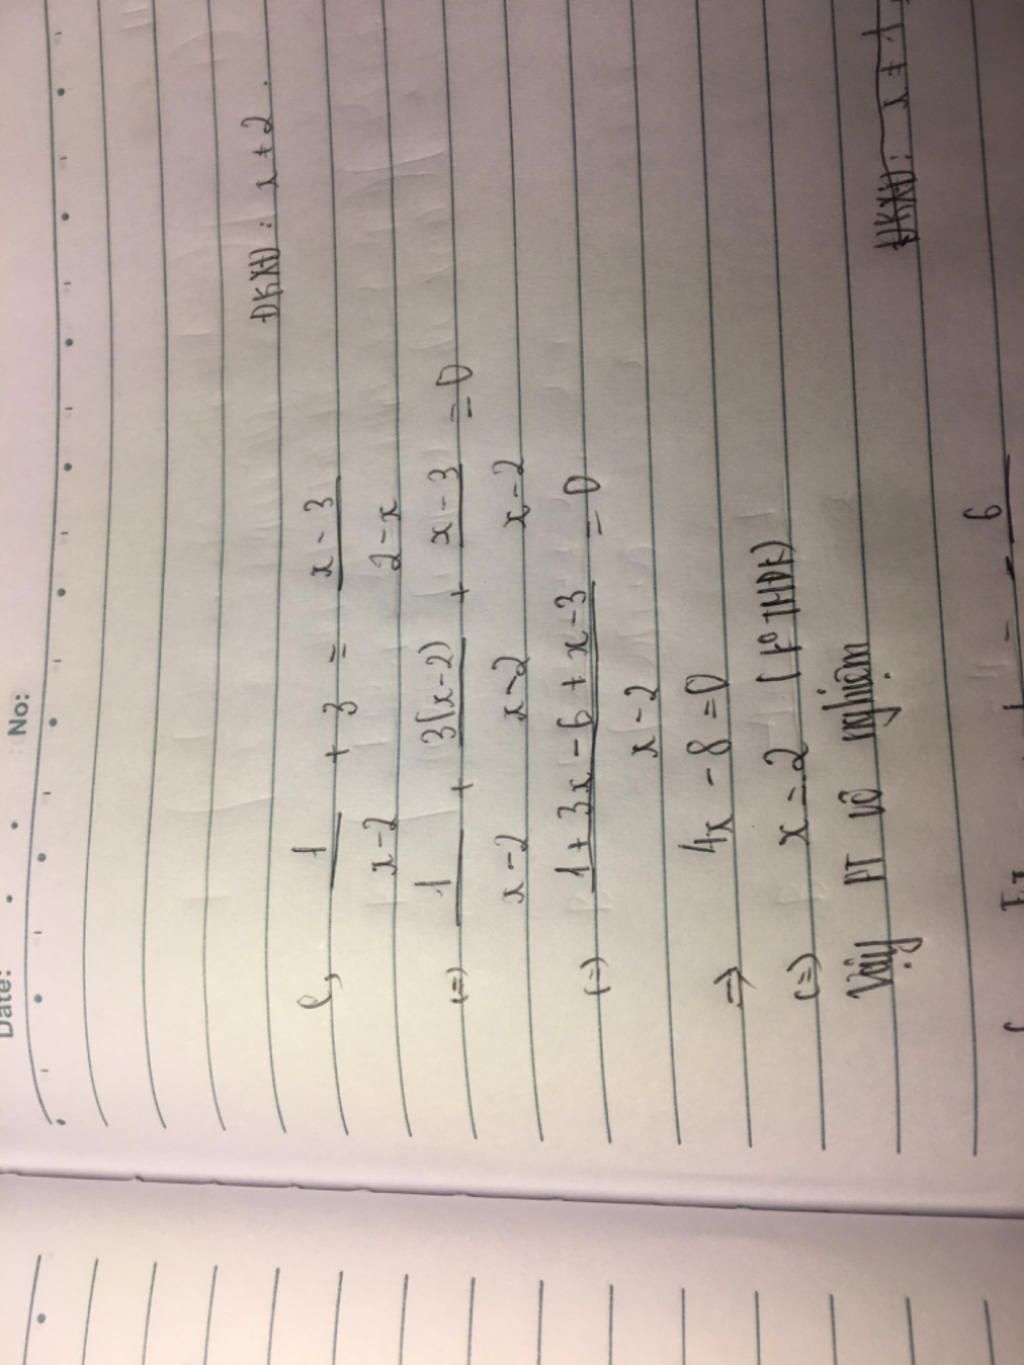 Date: No:
ĐKXĐ : x ≠ 2 .
e, 1/(x-2) + 3 = (x-3)/(2-x)
(=) 1/(x-2) + 3(x-2)/(x-2) + (x-3)/(x-2) = 0
(=) (1+3x-6+x-3)/(x-2) = 0
=> 4x - 8 = 0
(=) x = 2 (k° TMĐK)
Vậy PT vô nghiệm
ĐKXĐ: x ≠
6